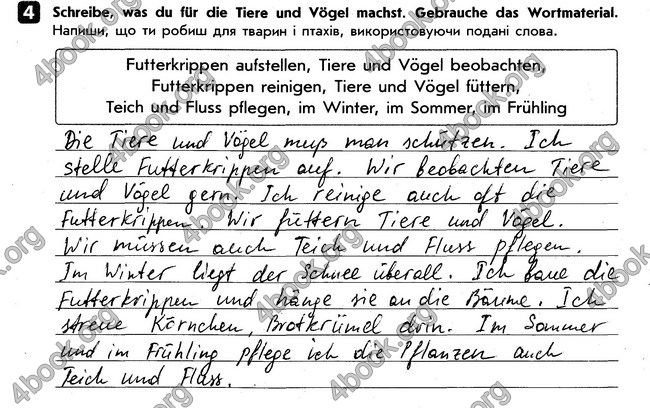 4 Schreibe, was du für die Tiere und Vögel machst. Gebrauche das Wortmaterial.
Напиши, що ти робиш для тварин і птахів, використовуючи подані слова.
Futterkrippen aufstellen, Tiere und Vögel beobachten,
Futterkrippen reinigen, Tiere und Vögel füttern,
Teich und Fluss pflegen, im Winter, im Sommer, im Frühling
Die Tiere und Vögel muß man schützen. Ich
stelle Futterkrippen auf. Wir beobachten Tiere
und Vögel gern. Ich reinige auch oft die
Futterkrippen. Wir füttern Tiere und Vögel.
Wir müssen auch Teich und Fluss pflegen.
Im Winter liegt der Schnee überall. Ich baue die
Futterkrippen und hänge sie an die Bäume. Ich
streue Körnchen, Brotkrümel drin. Im Sommer
und im Frühling pflege ich die Pflanzen auch
Teich und Fluss.